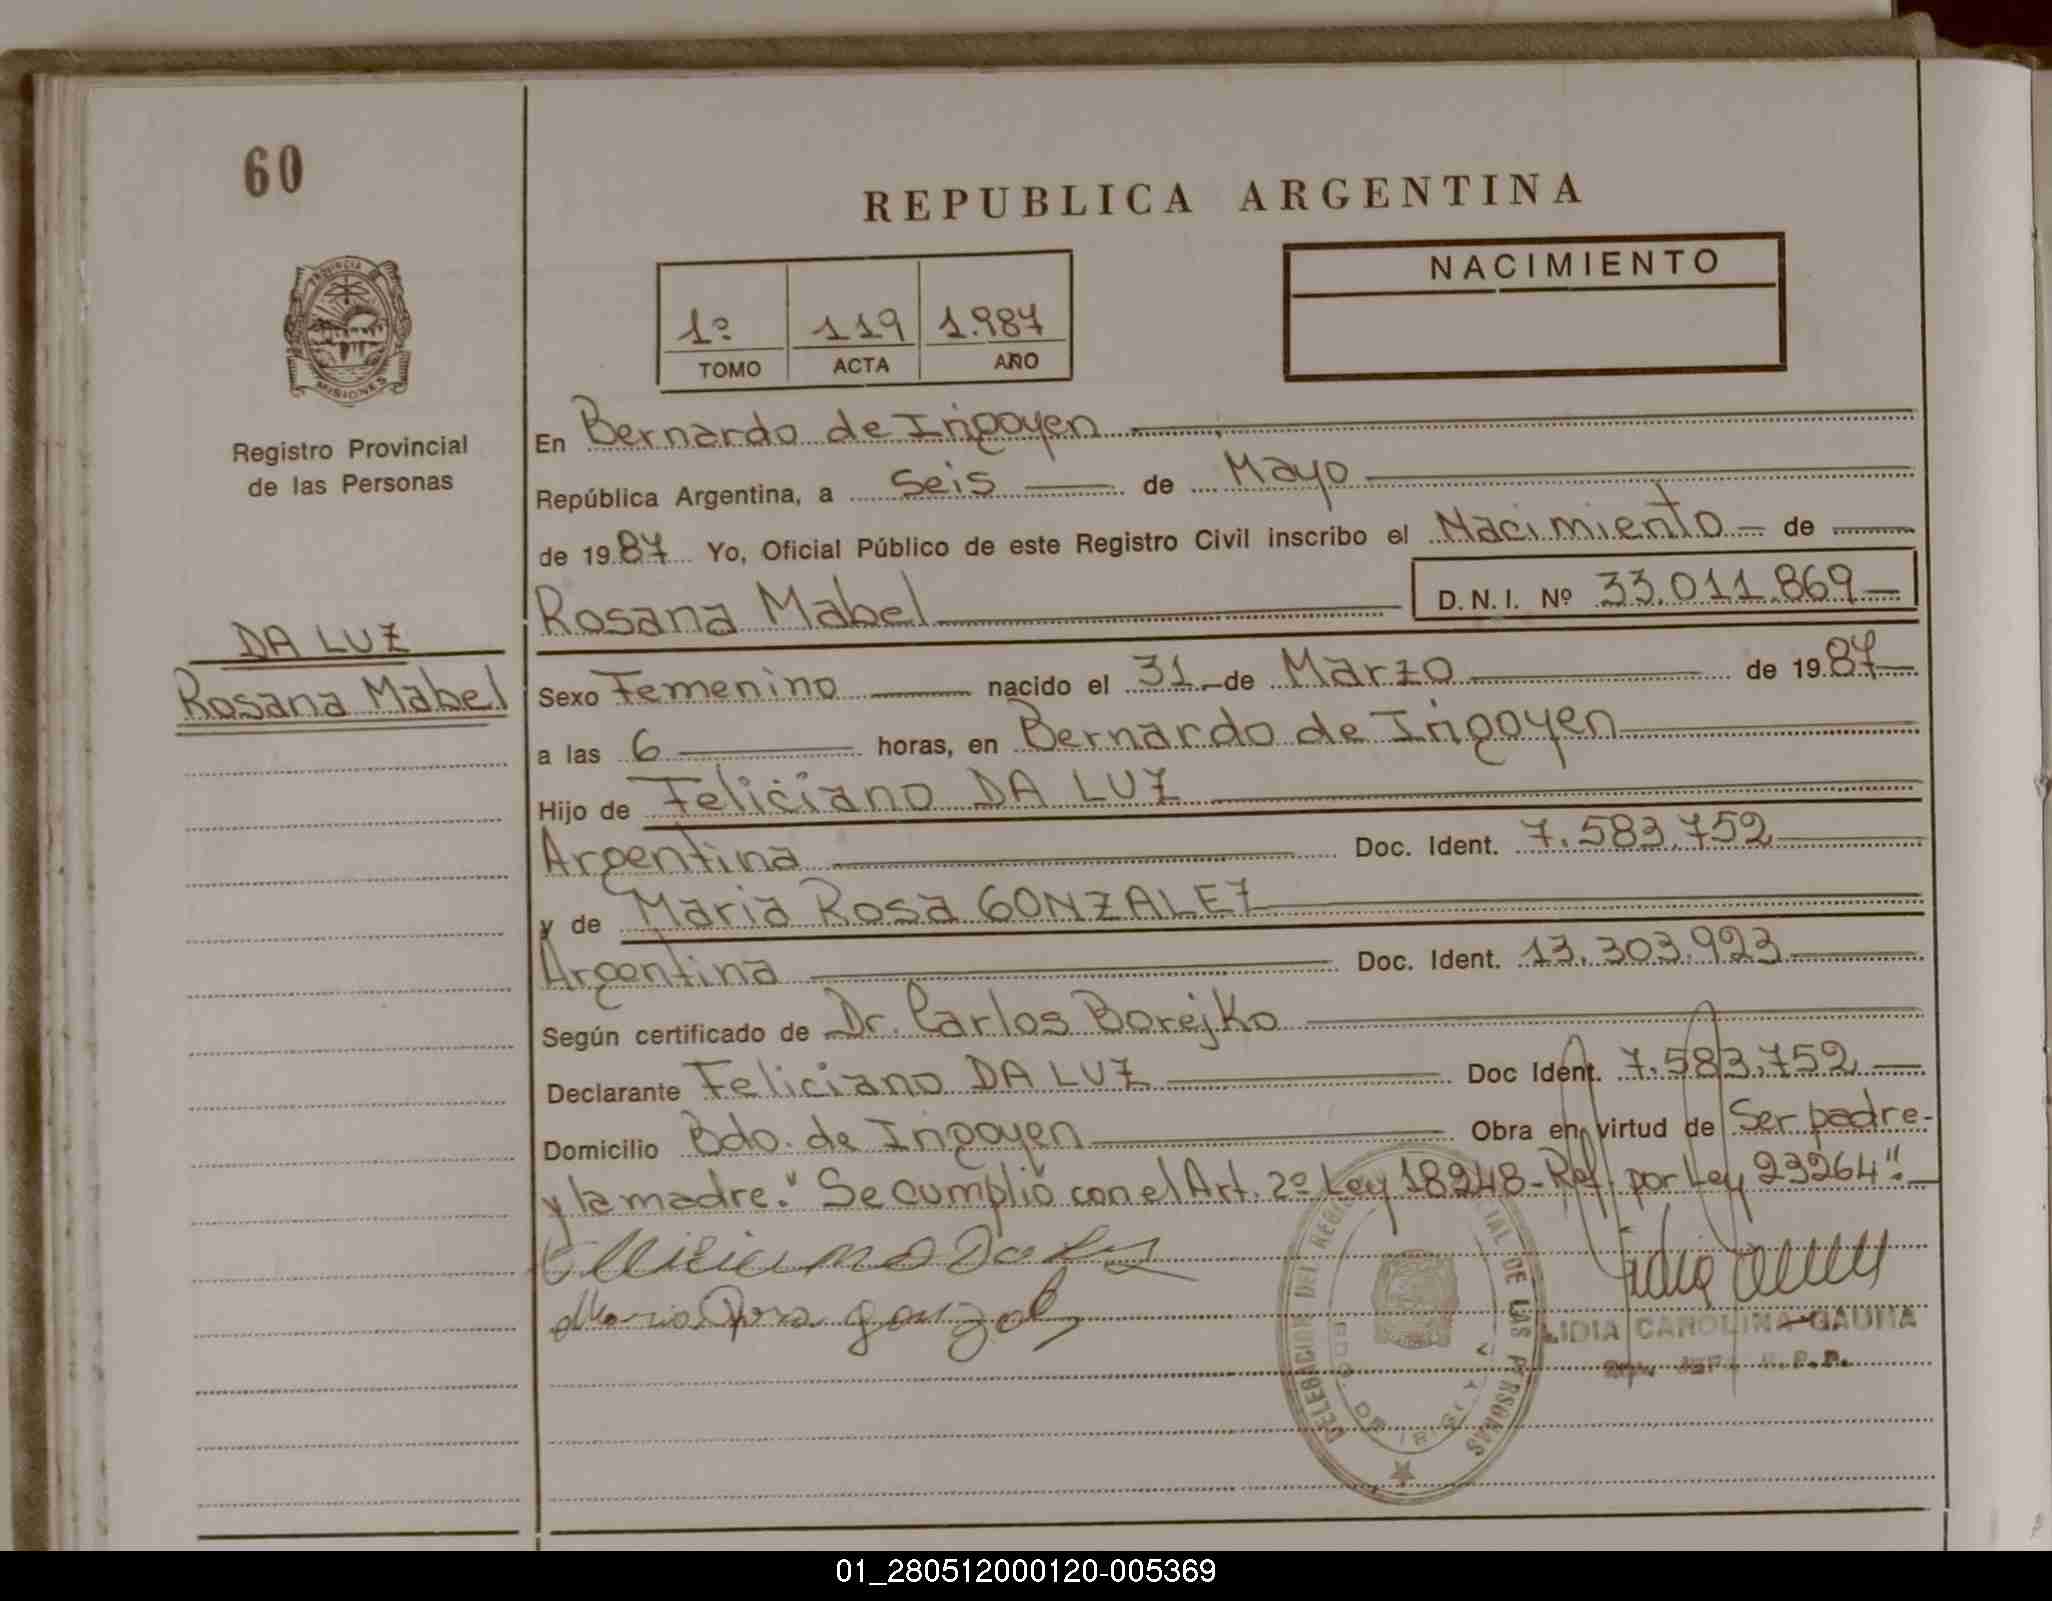 60
REPUBLICA ARGENTINA
PROVINCIA
MISIONES
NACIMIENTO
1º 119 1.987
TOMO ACTA AÑO
Registro Provincial
de las Personas
En Bernardo de Irigoyen
República Argentina, a Seis de Mayo
de 1987 Yo, Oficial Público de este Registro Civil inscribo el Nacimiento de
Rosana Mabel D.N.I. Nº 33.011.869
DA LUZ
Rosana Mabel
Sexo Femenino nacido el 31 de Marzo de 1987
a las 6 horas, en Bernardo de Irigoyen
Hijo de Feliciano DA LUZ
Argentina Doc. Ident. 7.583.752
y de Maria Rosa GONZALEZ
Argentina Doc. Ident. 13.303.923
Según certificado de Dr. Carlos Borejko
Declarante Feliciano DA LUZ Doc Ident. 7.583.752
Domicilio Bdo. de Irigoyen Obra en virtud de Ser padre
y la madre. "Se cumplió con el Art. 2º Ley 18248 - Ref. por Ley 23264".
Maria Rosa gonzalez
DELEGACION DEL REGISTRO PROVINCIAL DE LAS PERSONAS
BDO. DE IRIGOYEN
LIDIA CAROLINA GAUNA
01_280512000120-005369